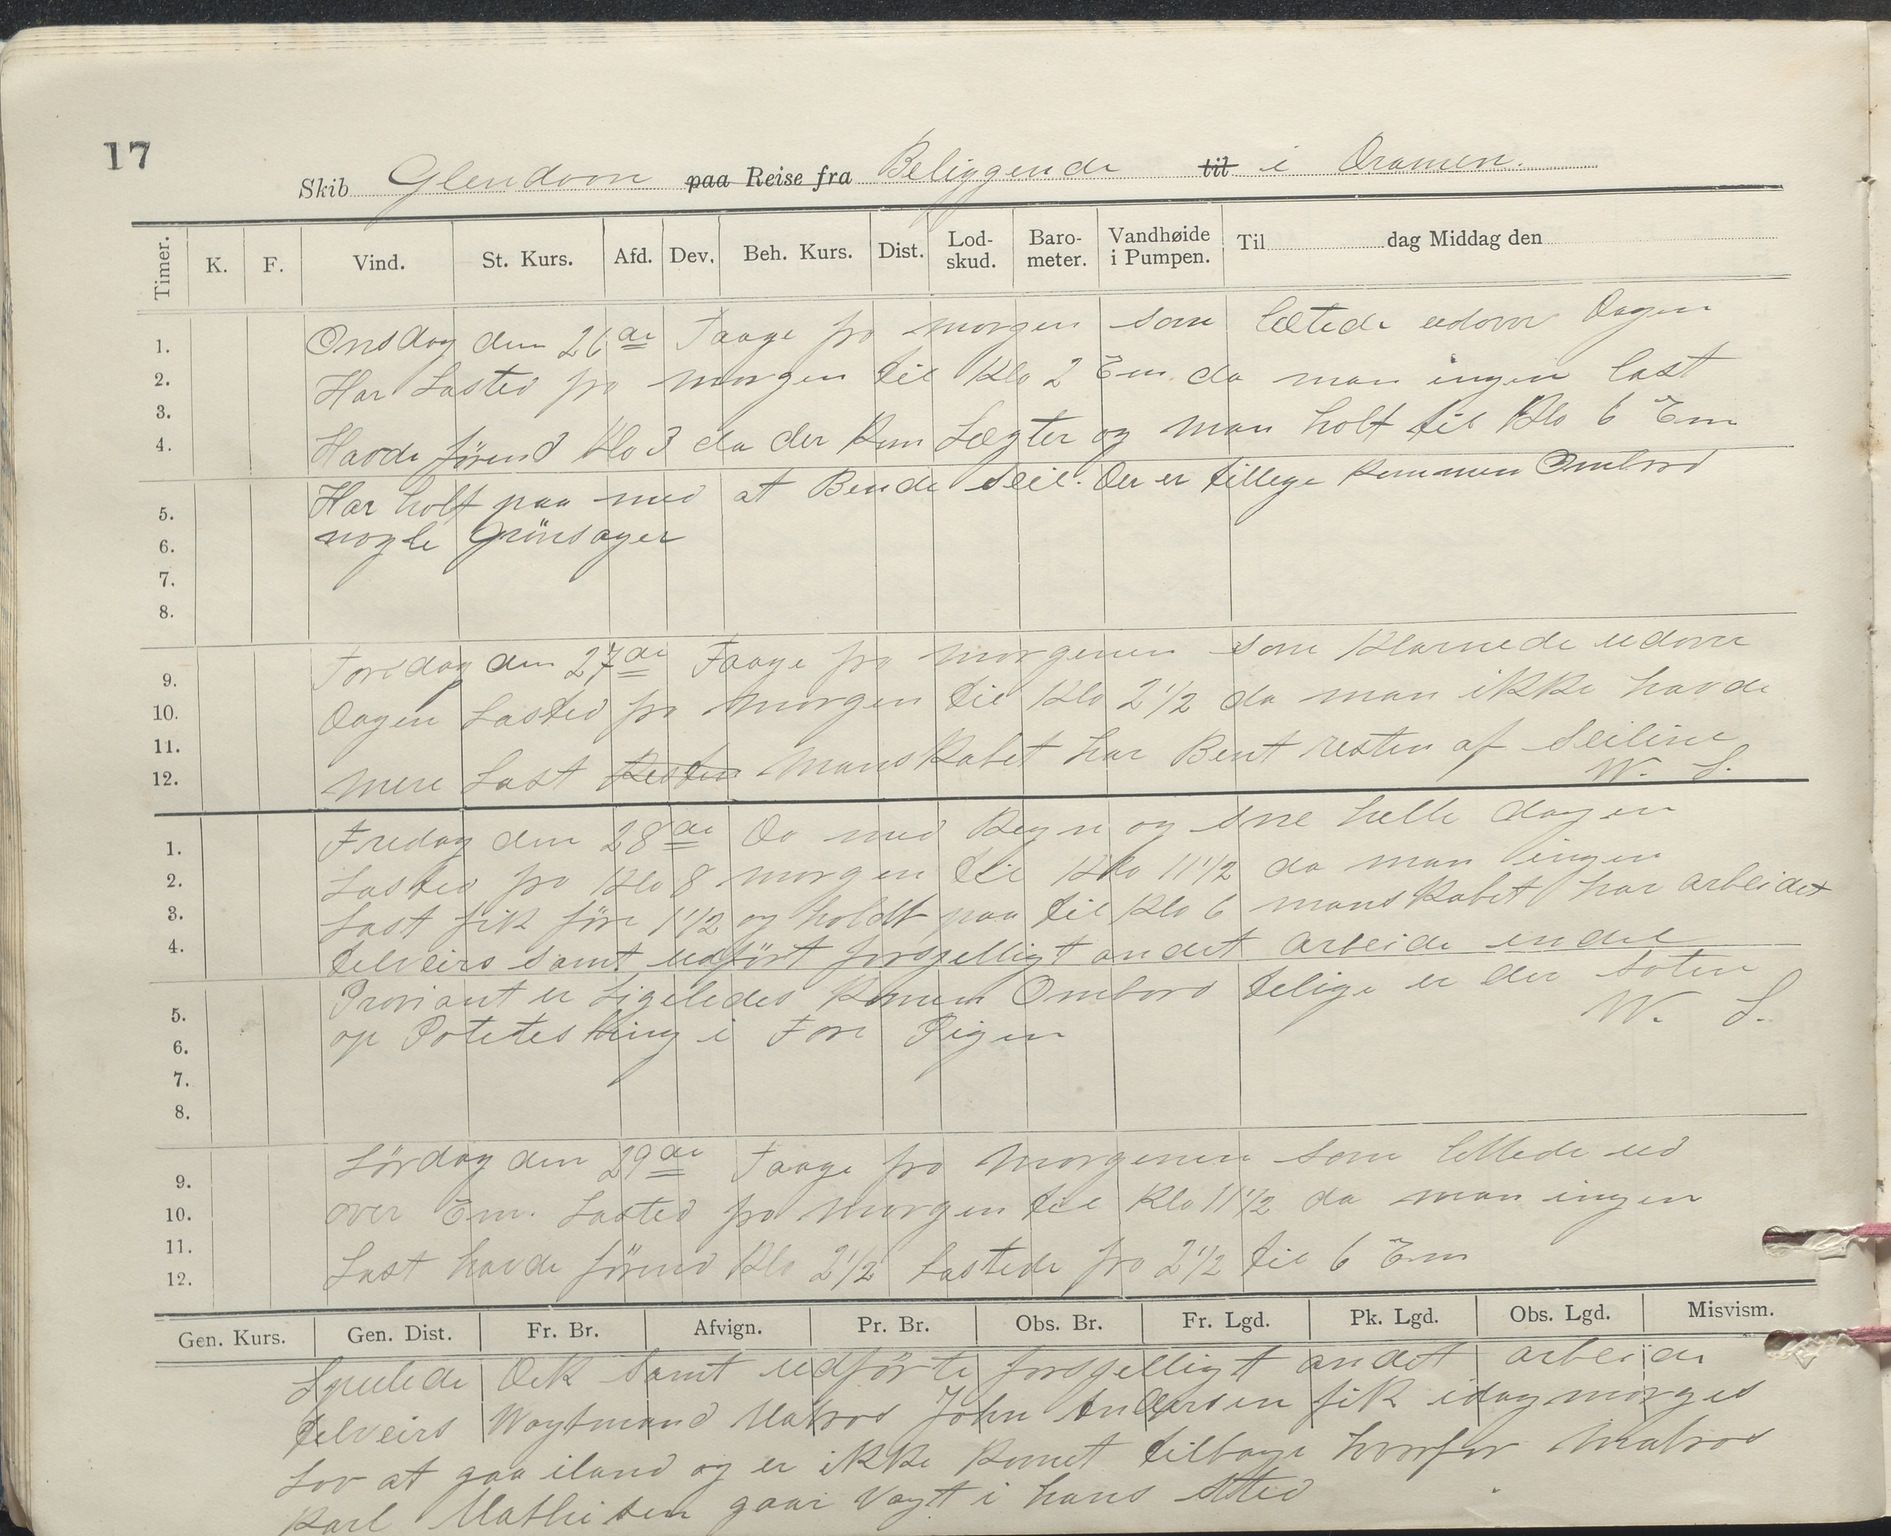 17
Skib Glendoon paa Reise fra Beliggende til i Dramen.
Timer. K. F. Vind. St. Kurs. Afd. Dev. Beh. Kurs. Dist. Lod-skud. Baro-meter. Vandhøide i Pumpen. Til dag Middag den
1. Onsdag den 26de Taage fra morgen som lætede udover Dagen
2. Har Lasted fra morgen til Klo 2 Em. da man ingen last
3. Havde förend Klo 3 da der Kom Lægter og man holt til Klo 6 Em
4.
5. Har holt paa med at Bende Seil. Der er tillige Kommen Ombord
6. nogle Grönsager
7.
8.
9. Torsdag den 27de Taage fra morgenen som Klarnede udover
10. Dagen Lasted fra morgen til Klo 2 1/2 da man ikke havde
11. mere Last Resten Manskabet har Bent resten af Seilene
12. W. S.
1. Fredag den 28de Do med Regn og Sne helle dagen
2. Lasted fra Klo 8 morgen til Klo 11 1/2 da man ingen
3. Last fik före 1 1/2 og holdt paa til Klo 6 manskabet har arbeidet
4. tilveirs samt udfört forsgelligt andet arbeide endel
5. Proviant er Ligeledes Komen Ombord telige er der saten
6. op Potetesbing i Fore Pigen W. S.
7.
8.
9. Lördag den 29de Taage fra Morgenen som lettede ud
10. over Em. Lasted fra morgen til Klo 11 1/2 da man ingen
11. Last havde förend Klo 2 1/2 Lastede fra 2 1/2 til 6 Em
12.
Gen. Kurs. Gen. Dist. Fr. Br. Afvign. Pr. Br. Obs. Br. Fr. Lgd. Pk. Lgd. Obs. Lgd. Misvism.
Spulede Dek samt udförte forsgelligt andet arbeide
tilveirs Wagtmand Matros John Andersen fik idag morges
Lov at gaa iland og er ikke Komet tilbage hvorfor Matros
Karl Mathisen gaar Vagt i hans Sted